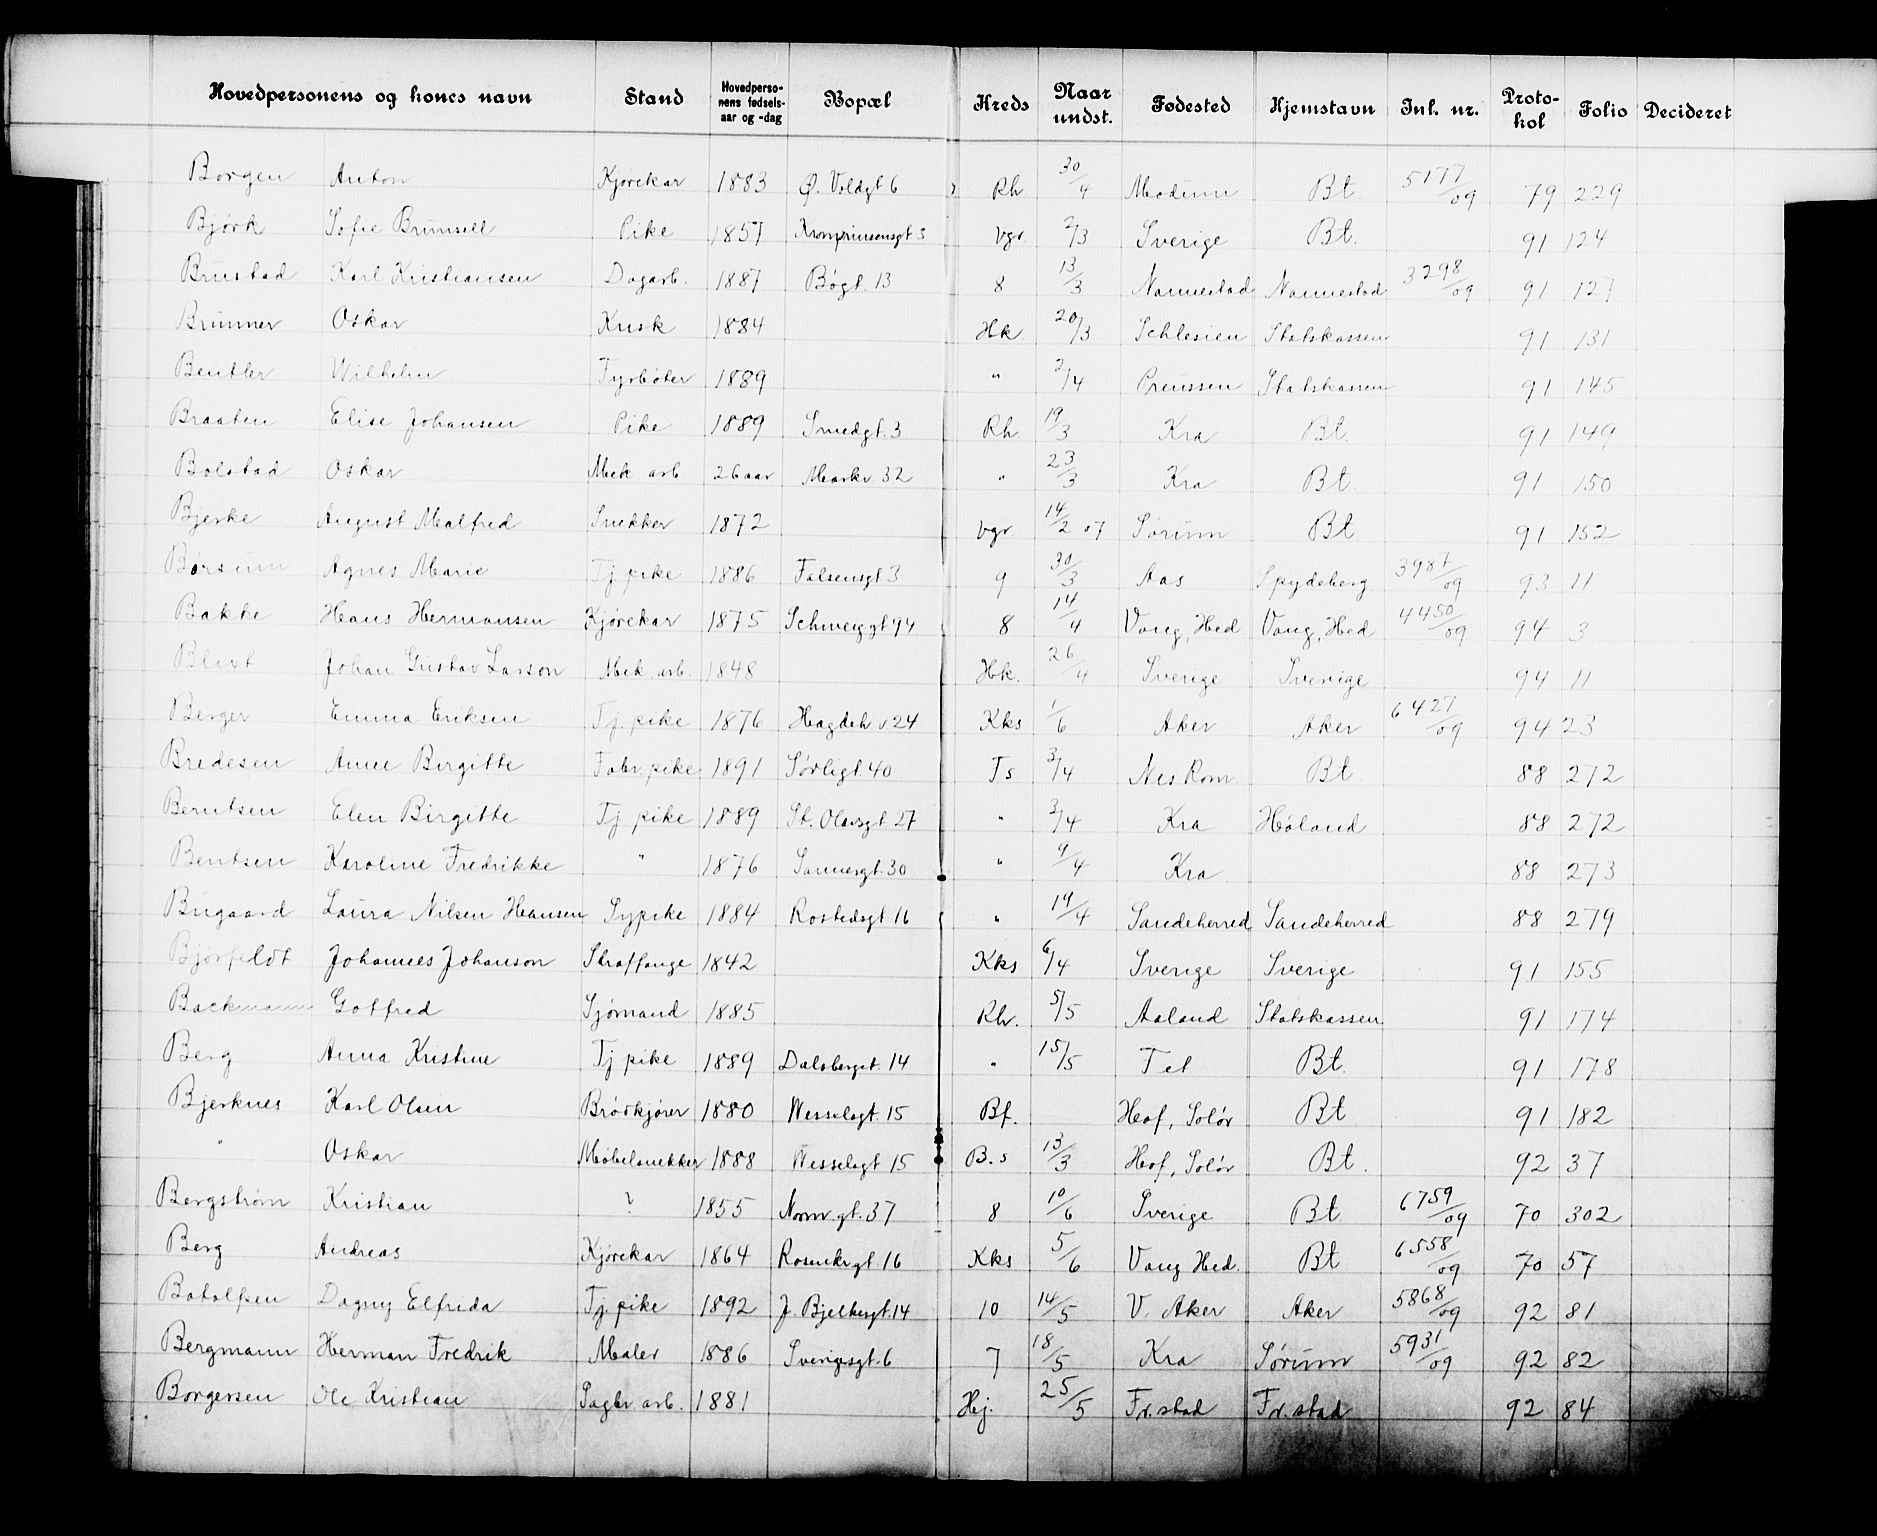 Hovedpersonens og kones navn | Stand | Hovedpersonens fødselsaar og -dag | Bopæl | Kreds | Naar undst. | Fødested | Hjemstavn | Inl. nr. | Protokol | Folio | Decideret
Borgen Anton Kjørekar 1883 Ø. Voldgt 6 Rh 30/4 Modum Bt. 5177/09 79 229
Bjørk Sofie Brunsell Pike 1857 Kronprinsensgt 3 Vgr. 2/3 Sverige Bt. 91 124
Brustad Karl Kristiansen Dagarb. 1887 Bøgt. 13 8 13/3 Nannestad Nannestad 3298/09 91 127
Brunner Oskar Kusk 1884 Hk. 20/3 Schlesien Statskassen 91 131
Beutler Wilhelm Fyrbøter 1889 " 2/4 Preussen Statskassen 91 145
Braaten Elise Johansen Pike 1889 Smedgt. 3 Rh. 19/3 Kra Bt. 91 149
Bolstad Oskar Mek arb 26 aar Markv 32 " 23/3 Kra Bt. 91 150
Bjerke August Malfred Snekker 1872 Vgr. 14/2 07 Sørum Bt. 91 152
Børsum Agnes Marie Tj. pike 1886 Falsensgt 3 9 30/3 Aas Spydeberg 3987/09 93 11
Bakke Hans Hermansen Kjørekar 1875 Schweiggt 94 8 14/4 Vang, Hed Vang, Hed 4450/09 94 3
Blixt Johan Gustav Larson Mek. arb. 1848 Hk. 26/4 Sverige Sverige 94 11
Berger Emma Eriksen Tj. pike 1876 Hagdeh v 24 Kks 1/6 Aker Aker 6427/09 94 23
Bredesen Anne Birgitte Fabr. pike 1891 Sørligt. 40 Ts 3/4 Nes Rom. Bt. 88 272
Berntsen Elen Birgitte Tj pike 1889 St. Olavsgt 27 " 3/4 Kra Høland 88 272
Bentsen Karoline Fredrikke " 1876 Sannergt. 30 " 4/4 Kra 88 273
Bugaard Laura Nilsen Hansen Sypike 1884 Rostedsgt 16 " 19/4 Sandeherred Sandeherred 88 279
Bjørfeldt Johannes Johanson Straffange 1842 Kks 6/4 Sverige Sverige 91 155
Backmann Gotfred Sjømand 1885 Rh. 5/5 Aaland Statskassen 91 174
Berg Anna Kristine Tj pike 1889 Dalsbergst. 14 " 15/5 Tel Bt. 91 178
Bjerknes Karl Olsen Brødkjører 1880 Wesselsgt. 15 Bf. Hof, Solør Bt. 91 182
" Oskar Møbelsnekker 1888 Wesselsgt 15 B.s 13/3 Hof, Solør Bt. 92 37
Bergstrøm Kristian ? 1855 Norm gt. 37 8 10/6 Sverige Bt. 6759/09 70 302
Berg Andreas Kjørekar 1864 Rosenkrgt. 16 Kks 5/6 Vang Hed. Bt 6558/09 70 57
Botolfsen Dagny Elfrida Tj. pike 1892 J. Bjelkesgt. 14 10 14/5 V. Aker Aker 5868/09 92 81
Bergmann Herman Fredrik Maler 1886 Sverigesgt. 6 7 18/5 Kra Sørum 5931/09 92 82
Borgersen Ole Kristian Sagbr arb. 1881 Hej. 25/5 Fr.stad Fr.stad 92 84